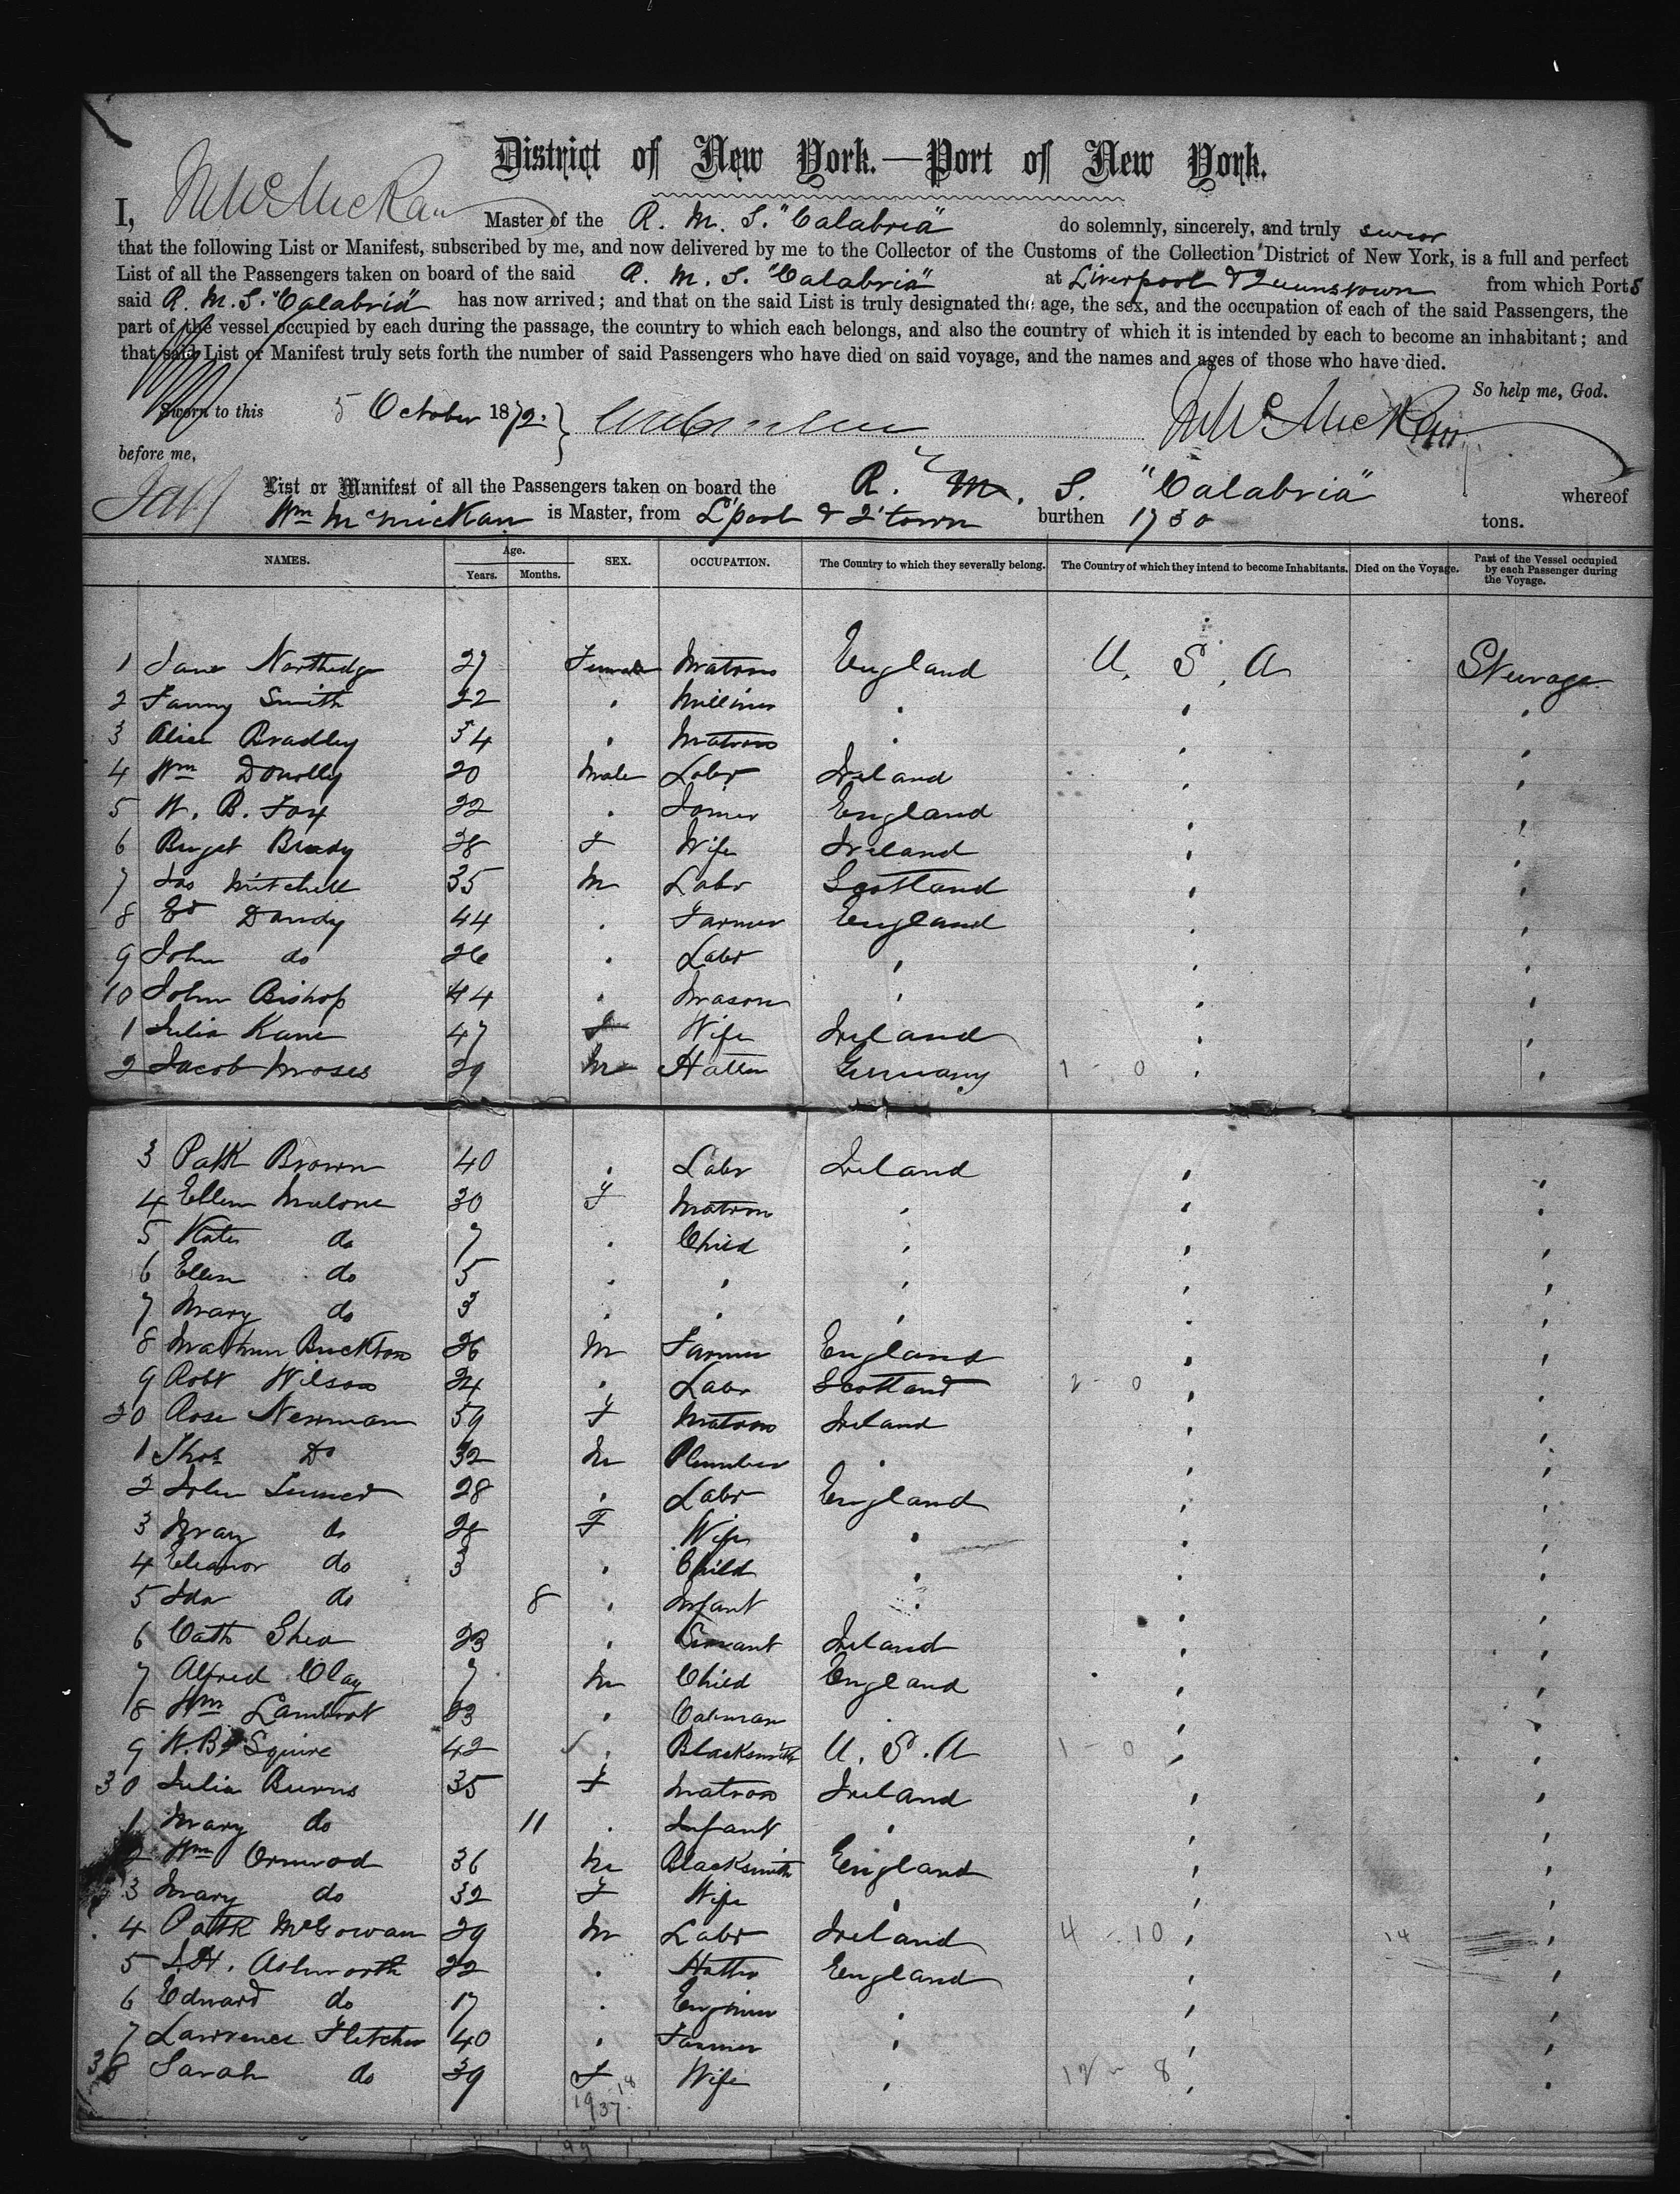 District of New York.—Port of New York.
I, Wm McMickan Master of the R. M. S. "Calabria" do solemnly, sincerely, and truly swear
that the following List or Manifest, subscribed by me, and now delivered by me to the Collector of the Customs of the Collection District of New York, is a full and perfect
List of all the Passengers taken on board of the said R. M. S. "Calabria" at Liverpool & Queenstown from which Ports
said R. M. S. "Calabria" has now arrived; and that on the said List is truly designated the age, the sex, and the occupation of each of the said Passengers, the
part of the vessel occupied by each during the passage, the country to which each belongs, and also the country of which it is intended by each to become an inhabitant; and
that said List or Manifest truly sets forth the number of said Passengers who have died on said voyage, and the names and ages of those who have died.
So help me, God.
Sworn to this 5 October 1872. Wm McMickan
before me,
List or Manifest of all the Passengers taken on board the R. M. S. "Calabria" whereof
Wm McMickan is Master, from L'pool & Q'town burthen 1730 tons.
NAMES. Age. Years. Months. SEX. OCCUPATION. The Country to which they severally belong. The Country of which they intend to become Inhabitants. Died on the Voyage. Part of the Vessel occupied by each Passenger during the Voyage.
1 Jane Northedge 27 Female Matron England U. S. A Steerage
2 Fanny Smith 22 " Milliner " " "
3 Alice Bradley 54 " Matron " " "
4 Wm Donolly 20 Male Labr Ireland " "
5 W. B. Fox 22 " Joiner England " "
6 Briget Brady 38 F Wife Ireland " "
7 Jas Mitchell 35 M Labr Scotland " "
8 Ed Dandy 44 " Farmer England " "
9 John do 26 " Labr " " "
10 John Bishop 44 " Mason " " "
1 Julia Kane 47 F Wife Ireland " "
2 Jacob Moses 29 M Hatter Germany 1 - 0 " "
3 Patk Brown 40 " Labr Ireland " "
4 Ellen Malone 30 F Matron " " "
5 Kate do 7 " Child " " "
6 Ellen do 5 " " " " "
7 Mary do 3 " " " " "
8 Mathew Buckton 26 M Farmer England " "
9 Robt Wilson 24 " Labr Scotland 2 - 0 " "
20 Rose Newman 59 F Matron Ireland " "
1 Thos Do 32 M Plumber " " "
2 John 28 " Labr England " "
3 Mary do 28 F Wife " " "
4 Eleanor do 3 " Child " " "
5 Ida do 8 " Infant " " "
6 Cath Shea 23 " Servant Ireland " "
7 Alfred Clay 7 M Child England " "
8 Wm Lambert 23 " Cabman " " "
9 W. B. Squire 42 " Blacksmith U. S. A 1 - 0 " "
30 Julia Burns 35 F Matron Ireland " "
1 Mary do 11 " Infant " " "
2 Wm Ormrod 36 M Blacksmith England " "
3 Mary do 32 F Wife " " "
4 Patk McGowan 29 M Labr Ireland 4 - 10 " 14 "
5 J. H. Ashworth 22 " Hatter England " "
6 Edward do 17 " Engineer " " "
7 Lawrence Fletcher 40 " Farmer " " "
38 Sarah do 39 F Wife " 12 - 8 " "